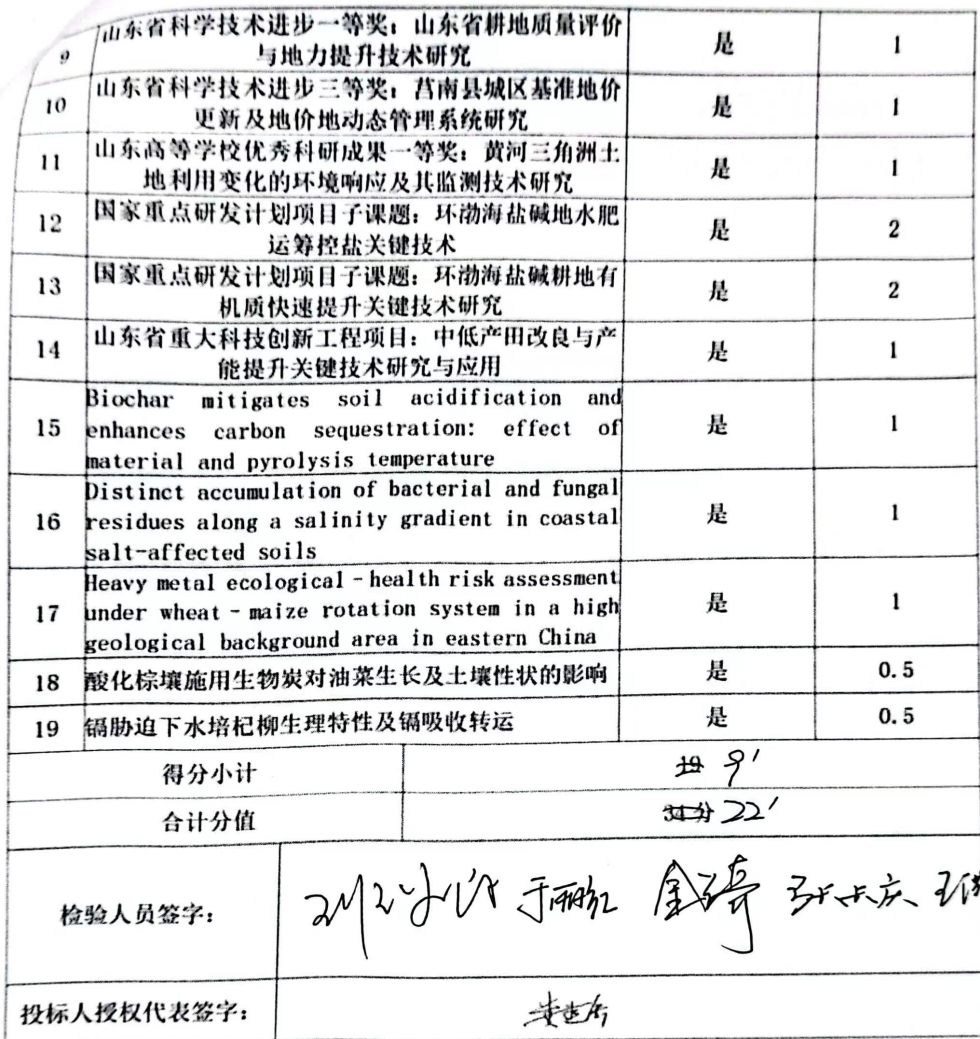 9 山东省科学技术进步一等奖：山东省耕地质量评价 是 1
与地力提升技术研究
10 山东省科学技术进步三等奖：莒南县城区基准地价 是 1
更新及地价地动态管理系统研究
11 山东高等学校优秀科研成果一等奖：黄河三角洲土 是 1
地利用变化的环境响应及其监测技术研究
12 国家重点研发计划项目子课题：环渤海盐碱地水肥 是 2
运筹控盐关键技术
13 国家重点研发计划项目子课题：环渤海盐碱耕地有 是 2
机质快速提升关键技术研究
14 山东省重大科技创新工程项目：中低产田改良与产 是 1
能提升关键技术研究与应用
Biochar mitigates soil acidification and
15 enhances carbon sequestration: effect of 是 1
material and pyrolysis temperature
Distinct accumulation of bacterial and fungal
16 residues along a salinity gradient in coastal 是 1
salt-affected soils
Heavy metal ecological-health risk assessment
17 under wheat-maize rotation system in a high 是 1
geological background area in eastern China
18 酸化棕壤施用生物炭对油菜生长及土壤性状的影响 是 0.5
19 镉胁迫下水培杞柳生理特性及镉吸收转运 是 0.5
得分小计 9'
合计分值 22'
检验人员签字： 于丽红
投标人授权代表签字：